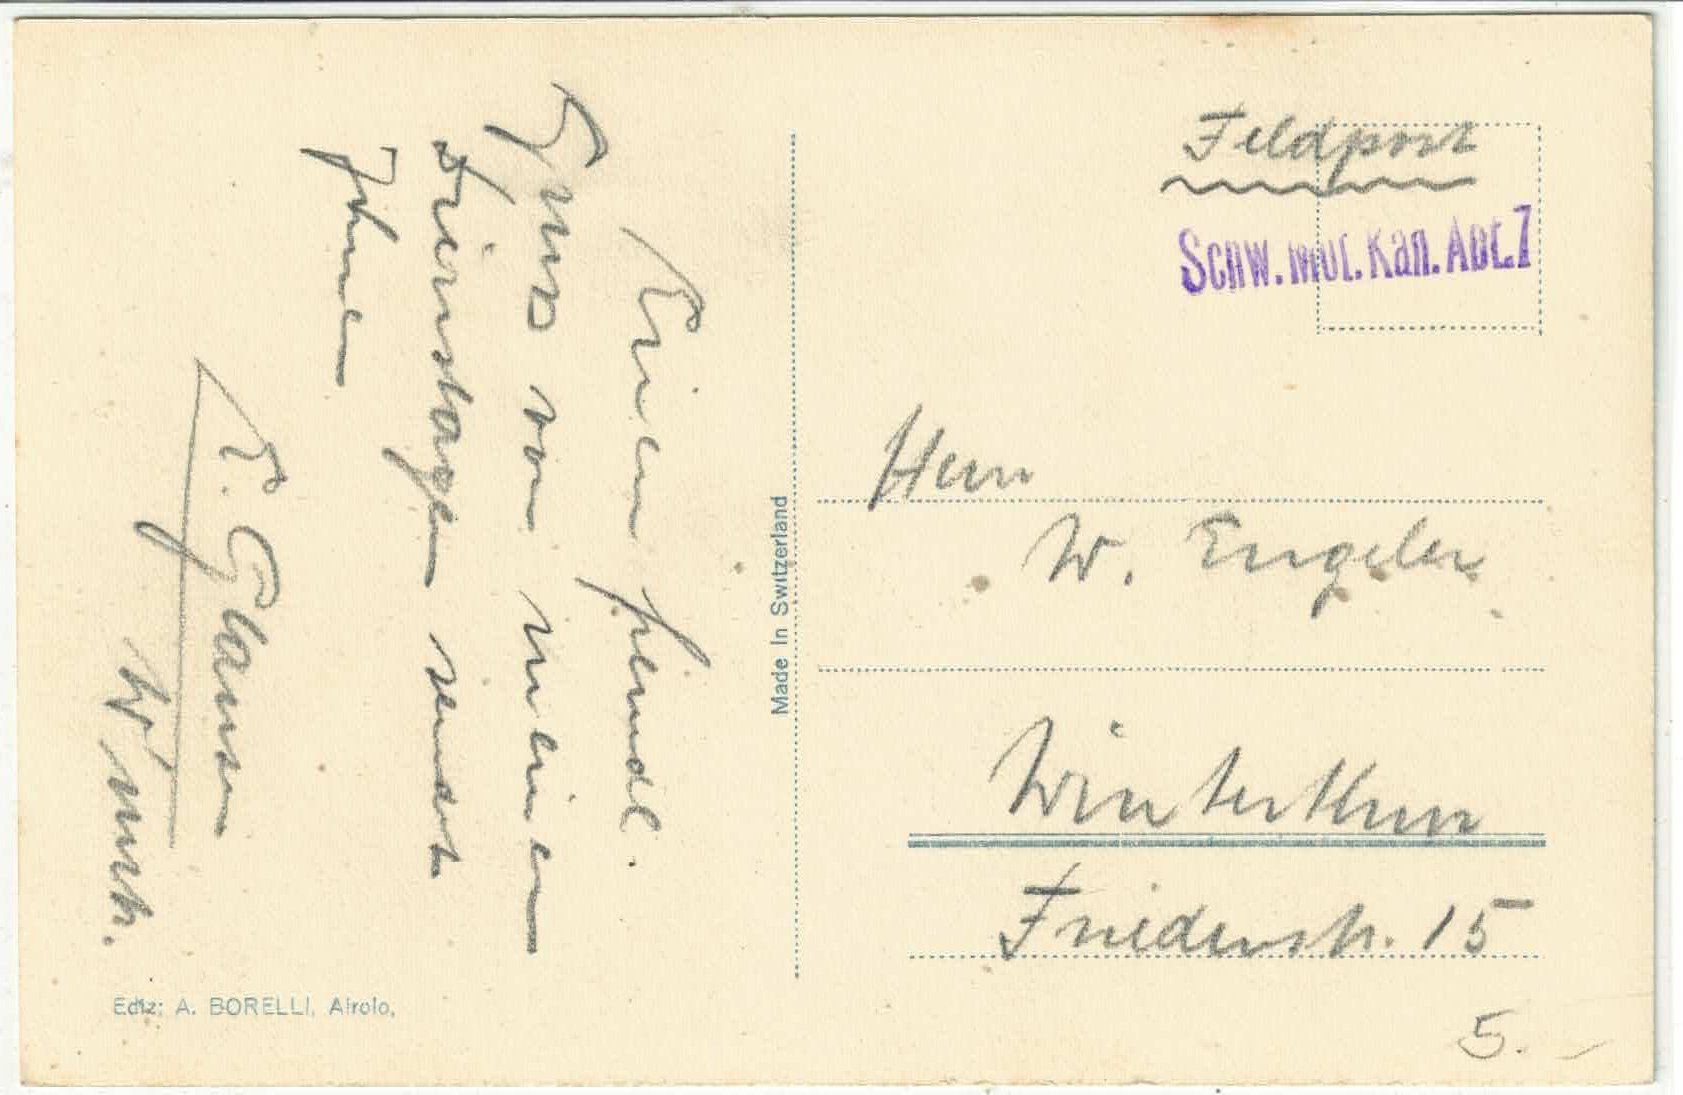 Einen freundl.
Gruss von meinen
Diensttagen sendet
Ihnen
E.
W'thur.
Ediz: A. BORELLI, Airolo,
Made in Switzerland
Feldpost
Schw. Mot. Kan. Abt. 7
Herrn
W. Engeler
Winterthur
Friedenstr. 15
5. –